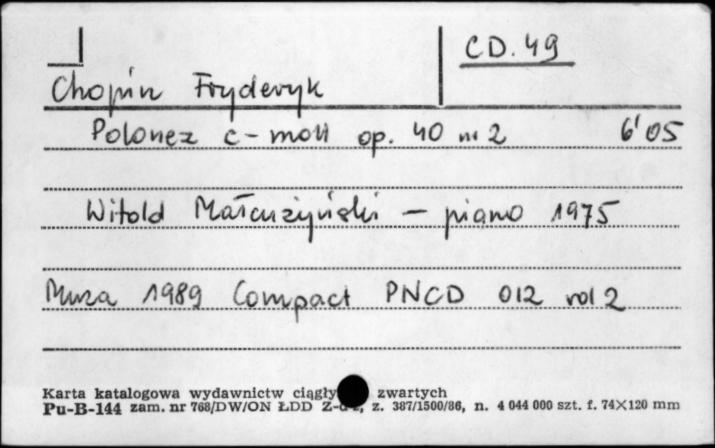 CD.49
Chopin Fryderyk
Polonez c-moll op. 40 nr 2 6'05
Witold Małcużyński - piano 1975
Muza 1989 Compact PNCD 012 vol 2
Karta katalogowa wydawnictw ciągły zwartych
Pu-B-144 zam. nr 768/DW/ON ŁDD z. 387/1500/86, n. 4 044 000 szt. f. 74×120 mm